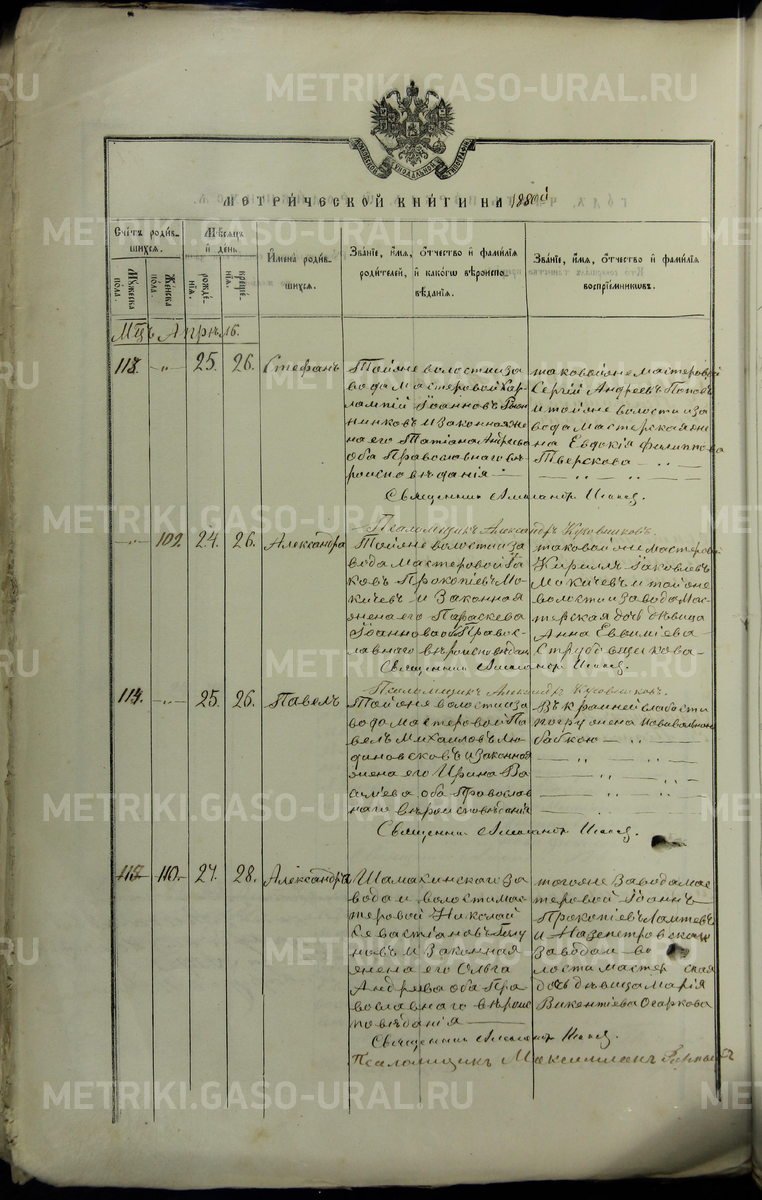 METRIKI.GASO-URAL.RU
МЕТРИ́ЧЕСКОЙ КНИ́ГИ НА 1880й
Счётъ роди́в-
шихся.
Мѣсяцъ
и҆ день.
И҆мена роди́в-
шихся.
Зва́нїе, и҆́мя, ѻ҆́тчество и҆ фами́лїя
роди́телей, и҆ како́гѡ вѣроиспо-
вѣ́данїя.
Зва́нїе, и҆́мя, ѻ҆́тчество и҆ фами́лїя
воспрїе́мникѡвъ.
Мужеска
пола.
Женска
пола.
рожде́-
нїя.
креще́-
нїя.
Мцъ Апрѣль.
113. -"- 25. 26. Стефанъ
Тойже волости и за
вода Мастеровой Хар-
лампій Іоанновъ
никовъ и законная же
на его Татіана Андреева
оба Православнаго вѣ-
роисповѣданія
таковойже мастеровой
Сергій Андреевъ Поповъ
и тойже волости и за
вода мастерская же
на Евдокія Филиппова
Тверскова
Священникъ Александръ
Псаломщикъ Александръ
-"- 109. 24. 26. Александра
Тойже волости и за
вода Мастеровой Іа
ковъ Прокопіевъ Мо-
кичевъ и законная
жена его Параскева
Іоаннова оба Правос-
лавнаго вѣроисповѣдан
таковой же мастеро
Кириллъ Іаковлевъ
Мокичевъ и тойже
волости и завода Мас-
терская дочь дѣвица
Анна Евѳиміева
Священникъ Александръ
Псаломщикъ Александръ
114. -"- 25. 26. Павелъ
Тойже волости и за
вода мастеровой Па
велъ Михаиловъ Лю
диновсковъ и законная
жена его Ирина Ва
сильева оба Православ
наго вѣроисповѣданія
Въ крайней слабости
погружена повивальною
бабкою
Священникъ Александръ
110. 27. 28. Александра
Шамахинскаго За
вода и волости мас
теровой Николай
Севастіановъ
новъ и законная
жена его Ольга
Андреева оба Пра
вославнаго вѣроис
повѣданія
тогоже Завода мас
теровой Іоаннъ
Прокопіевъ Лаптевъ
и Нязепетровскаго
Завода и во
лости мастерская
дочь дѣвица Марія
Викентіева Огаркова
Священникъ Александръ
Псаломщикъ Максимиліанъ